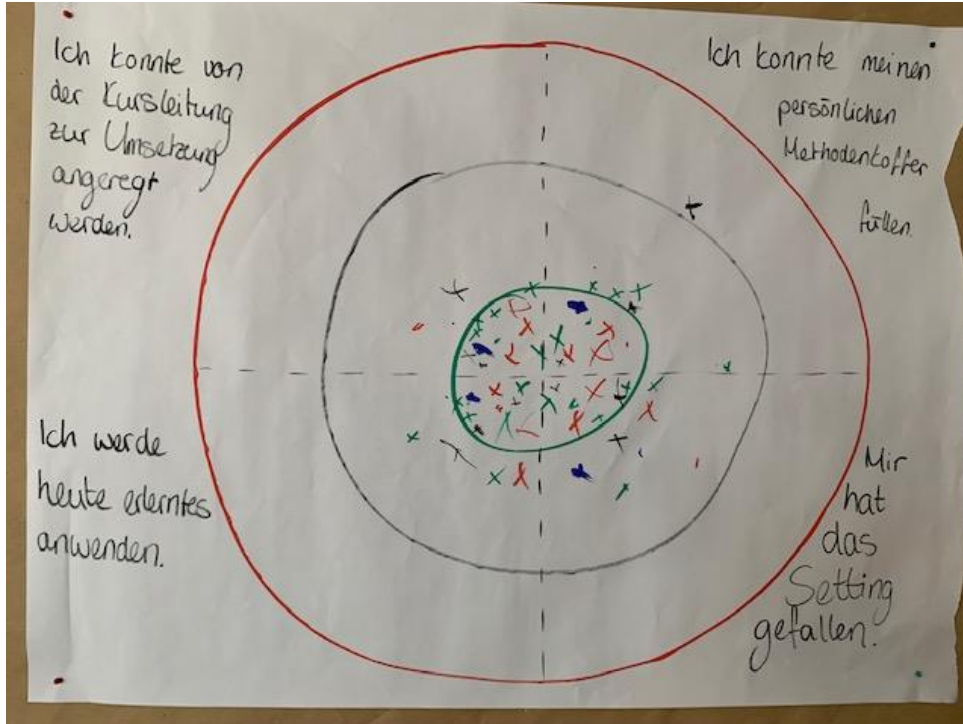 Ich konnte von
der Kursleitung
zur Umsetzung
angeregt
werden.
Ich konnte meinen
persönlichen
Methodenkoffer
füllen.
Ich werde
heute erlerntes
anwenden.
Mir
hat
das
Setting
gefallen.